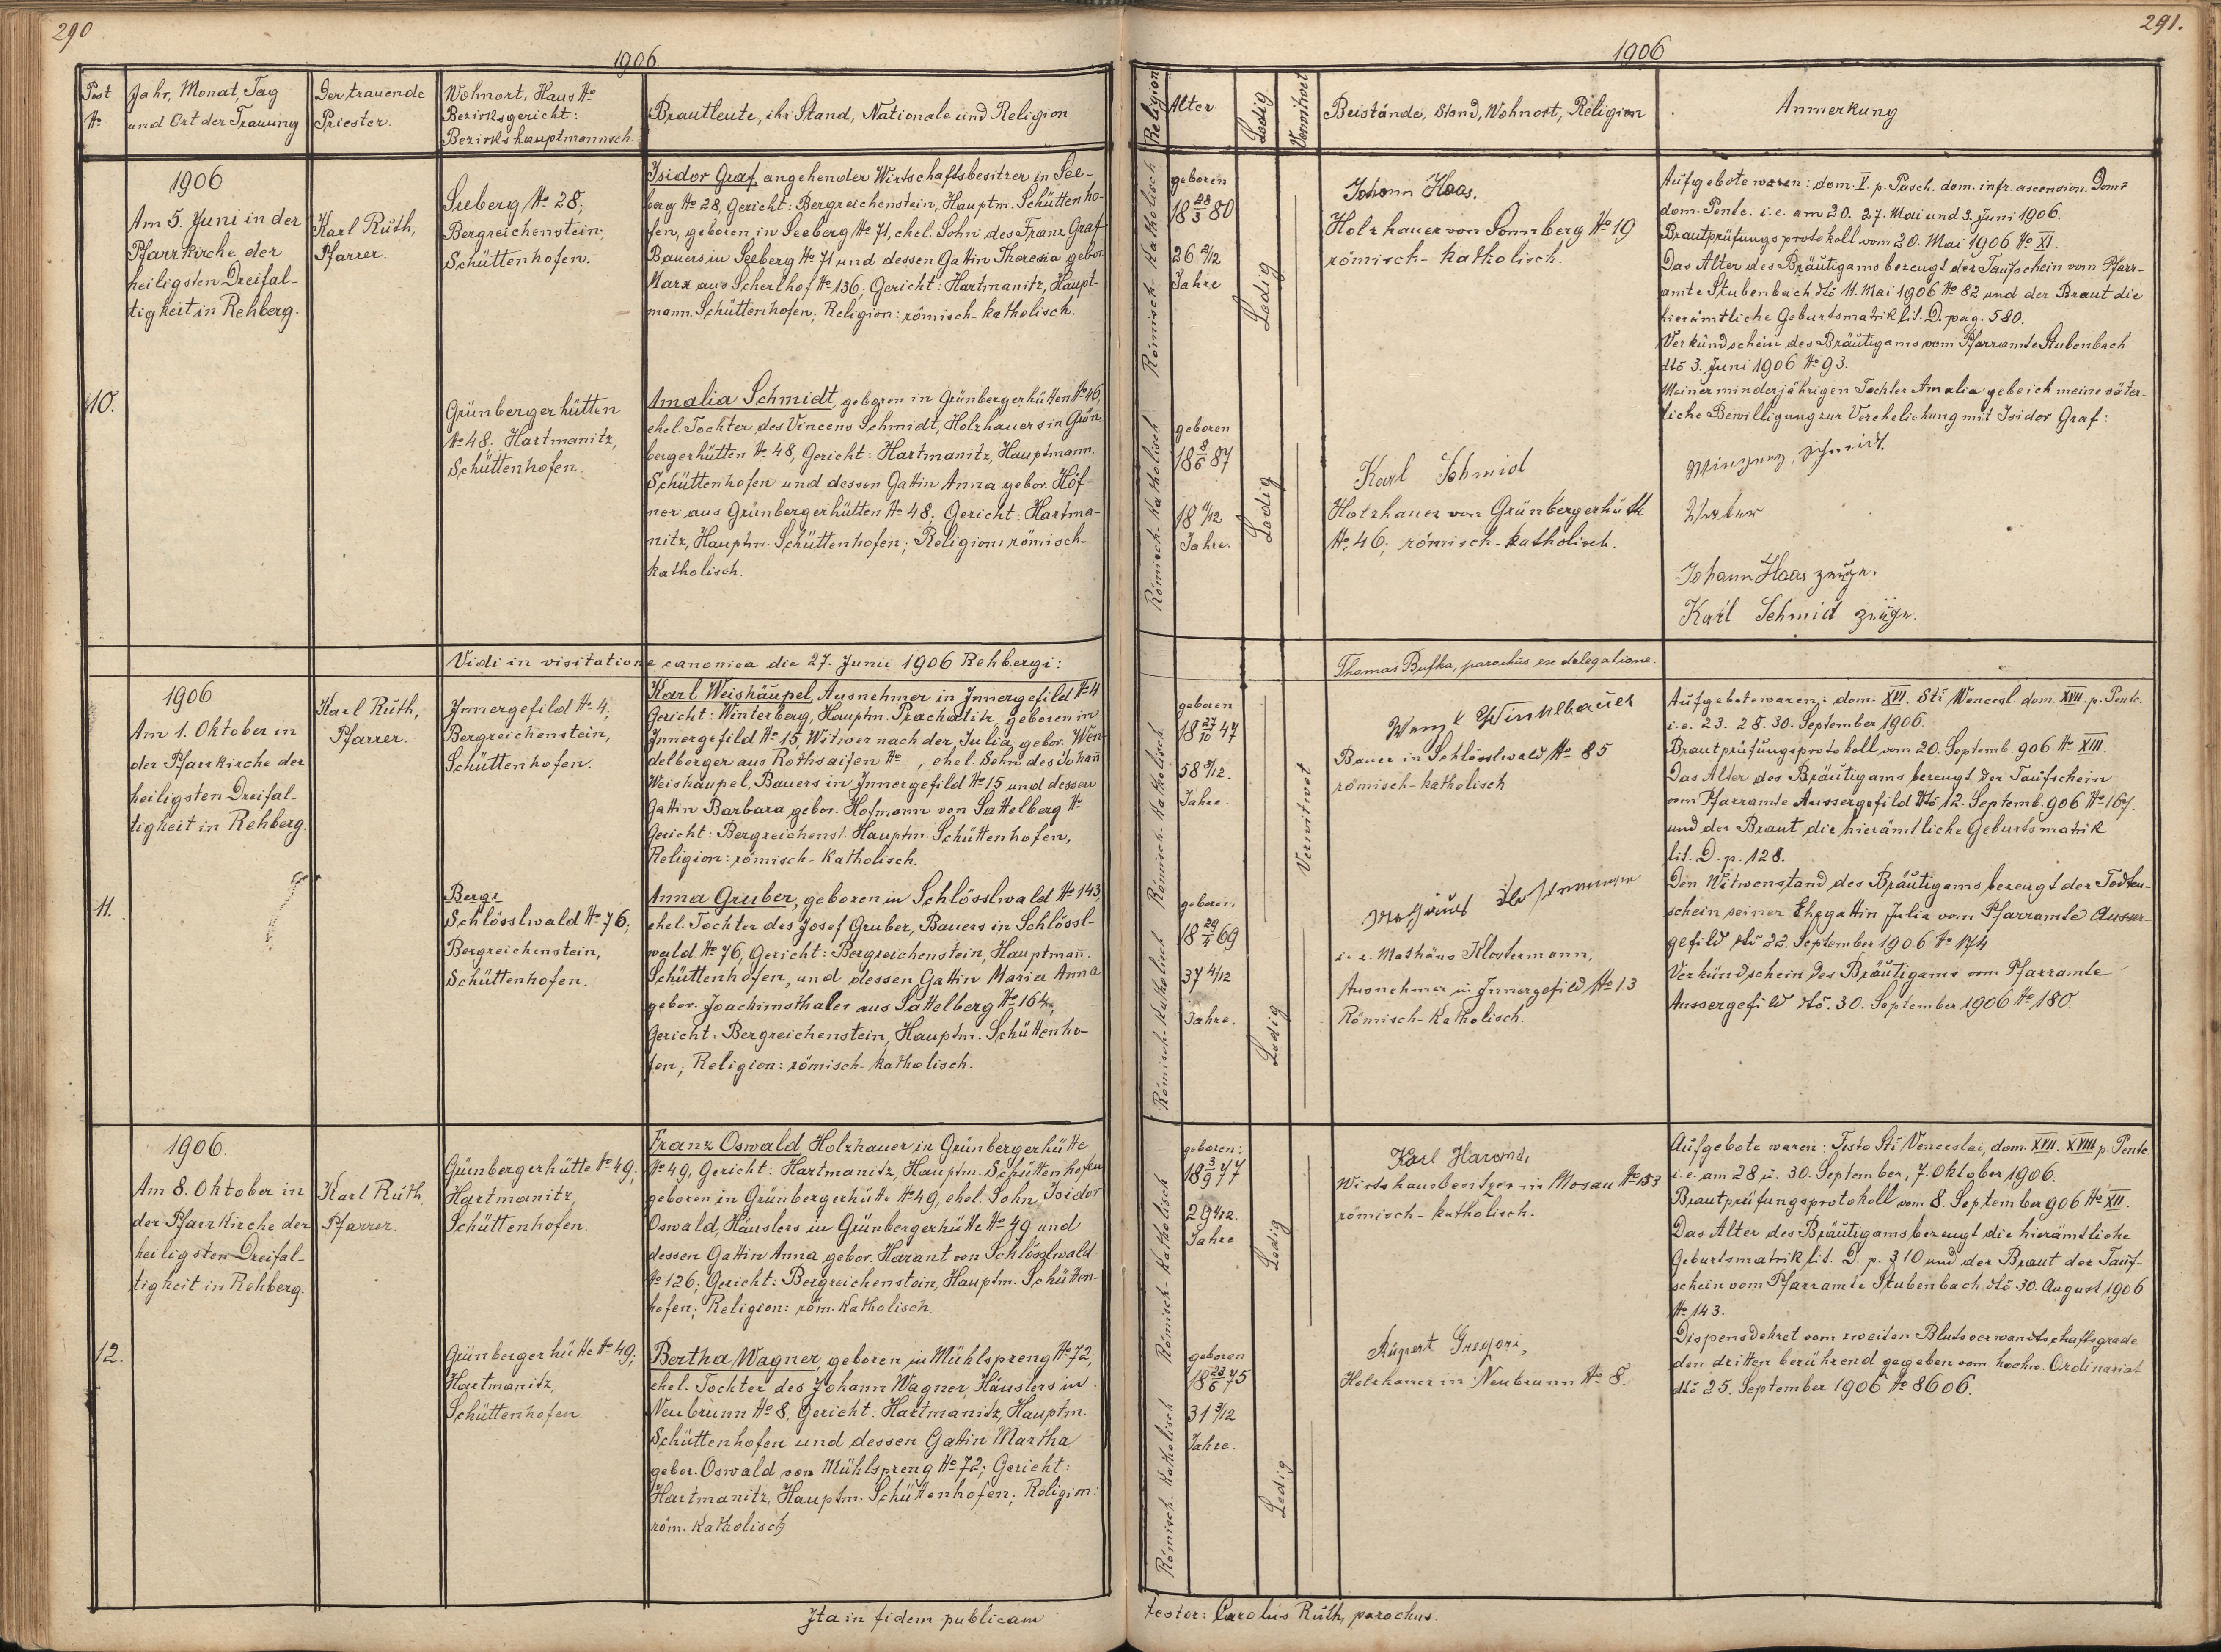 290
1906
Post
No
Jahr, Monat, Tag
und Ort der Trauung
Der trauende
Priester.
Wohnort, Haus No
Bezirksgericht:
Bezirkshauptmannsch.
Brautleute, ihr Stand, Nationale und Religion
10.
1906
Am 5. Juni in der
Pfarrkirche der
heiligsten Dreifal-
tigkeit in Rehberg.
Karl Rüth,
Pfarrer.
Seeberg No 28;
Bergreichenstein,
Schüttenhofen.
Isidor Graf, angehender Wirtschaftsbesitzer in See-
berg No 28, Gericht: Bergreichenstein, Hauptm. Schüttenho-
fen, geboren in Seeberg No 71, ehel. Sohn des Franz Graf
Bauers in Seeberg No 71 und dessen Gattin Theresia gebor.
Marx aus Scherlhof No 136; Gericht: Hartmanitz, Haupt-
mann. Schüttenhofen; Religion: römisch-katholisch.
Grünbergerhütten
No 48; Hartmanitz,
Schüttenhofen.
Amalia Schmidt, geboren in Grünbergerhütten No 46,
ehel. Tochter des Vincens Schmidt, Holzhauers in Grün-
bergerhütten No 48, Gericht: Hartmanitz, Hauptmann.
Schüttenhofen und dessen Gattin Anna gebor. Hof-
ner aus Grünbergerhütten No 48; Gericht: Hartma-
nitz, Hauptm. Schüttenhofen; Religion: römisch-
katholisch.
Vidi in visitatione canonica die 27. Junii 1906 Rehbergi:
11.
1906
Am 1. Oktober in
der Pfarrkirche der
heiligsten Dreifal-
tigkeit in Rehberg.
Karl Rüth,
Pfarrer.
Innergefild No 4;
Bergreichenstein,
Schüttenhofen.
Karl Weishäupel, Ausnehmer in Innergefild No 4
Gericht: Winterberg, Hauptm. Prachatitz, geboren in
Innergefild No 15, Witwer nach der Julia gebor. Wen-
delberger aus Rothsaifen No , ehel. Sohn des Johann
Weishäupel, Bauers in Innergefild No 15 und dessen
Gattin Barbara gebor. Hofmann von Sattelberg No
Gericht: Bergreichenst. Hauptm. Schüttenhofen,
Religion: römisch-katholisch.
Schlösslwald No 76;
Bergreichenstein,
Schüttenhofen.
Anna Gruber, geboren in Schlösslwald No 143,
ehel. Tochter des Josef Gruber, Bauers in Schlössl-
wald No 76, Gericht: Bergreichenstein, Hauptmann.
Schüttenhofen, und dessen Gattin Maria Anna
gebor. Joachimsthaler aus Sattelberg No 164;
Gericht: Bergreichenstein, Hauptm. Schüttenho-
fen; Religion: römisch-katholisch.
12.
1906.
Am 8. Oktober in
der Pfarrkirche der
heiligsten Dreifal-
tigkeit in Rehberg.
Karl Rüth,
Pfarrer.
Günbergerhütte No 49;
Hartmanitz,
Schüttenhofen.
Franz Oswald, Holzhauer in Grünbergerhütte
No 49, Gericht: Hartmanitz, Hauptm. Schüttenhofen
geboren in Grünbergerhütte No 49, ehel. Sohn, Isidor
Oswald, Häuslers in Grünbergerhütte No 49 und
dessen Gattin Anna gebor. Harant von Schlösslwald
No 126; Gericht: Bergreichenstein, Hauptm. Schütten-
hofen; Religion: röm. katholisch.
Grünbergerhütte No 49;
Hartmanitz,
Schüttenhofen.
Bertha Wagner, geboren in Mühlspreng No 72,
ehel. Tochter des Johann Wagner, Häuslers in
Neubrunn No 8, Gericht: Hartmanitz, Hauptm.
Schüttenhofen und dessen Gattin Martha
gebor. Oswald von Mühlspreng No 72; Gericht:
Hartmanitz, Hauptm. Schüttenhofen; Religion:
röm. katholisch
Ita in fidem publicam
291.
1906
Religion
Alter
Ledig
Verwitwet
Beistände, Stand, Wohnort, Religion
Anmerkung
Römisch-katholisch
geboren
18 23/3 80
26 2/12
Jahre
Ledig
Johann Haas,
Holzhauer von Sonnberg No 19
römisch-katholisch.
Aufgebote waren: dom. V. p. Pasch. dom. infr. ascension. Domi
dom. Pente. i. e. am 20. 27. Mai und 3. Juni 1906.
Brautprüfungsprotokoll vom 20. Mai 1906 No XI.
Das Alter des Bräutigams bezeugt der Taufschein vom Pfarr-
amte Stubenbach dto 11. Mai 1906 No 82 und der Braut die
hierämtliche Geburtsmatrik lit. D. pag. 580.
Verkündschein des Bräutigams vom Pfarramte Stubenbach
dto 3. Juni 1906 No 93.
Meiner minderjährigen Tochter Amalia gebe ich meine väter-
liche Bewilligung zur Verehelichung mit Isidor Graf:
Schmidt
Vater
Johann Haas zeuge.
Karl Schmid zeuge.
Römisch-katholisch
geboren
18 8/6 87
18 11/12
Jahre.
Ledig
Karl Schmid
Holzhauer von Grünbergerhütt
No 46; römisch-katholisch.
Thomas Bufka, parochus ex delegatione.
Römisch-katholisch
geboren
18 27/10 47
58 11/12.
Jahre.
Verwitwet
Wenzl Winkelbauer
Bauer in Schlösslwald No 85
römisch-katholisch
Aufgebote waren: dom. XVI. Sti Wencesl. dom. XVII. p. Pente.
i. e. 23. 28. 30. September 1906.
Brautprüfungsprotokoll vom 20. Septemb. 906 No XIII.
Das Alter des Bräutigams bezeugt der Taufschein
vom Pfarramte Aussergefild dto 12. Septemb. 906 No 167.
und der Braut die hierämtliche Geburtsmatrik
lit. D. p. 128.
Den Witwenstand des Bräutigams bezeugt der Todten-
schein seiner Ehegattin Julia vom Pfarramte Ausser-
gefild dto 22. September 1906 No 174
Verkündschein des Bräutigams vom Pfarramte
Aussergefild dto. 30. September 1906 No 180
Römisch-katholisch
geboren
18 29/4 69
37 4/12
Jahre.
Ledig
i. e. Mathäus Klostermann,
Ausnehmer in Innergefild No 13
Römisch-katholisch.
Römisch-katholisch
geboren:
18 3/9 77
29 1/12.
Jahre
Ledig
Karl Harand,
Wirtshausbesitzer in Mosau No 153
römisch-katholisch.
Aufgebote waren: Festo Sti Venceslai, dom. XVII. XVIII p. Pente.
i. e. am 28 u. 30. September, 7. Oktober 1906.
Brautprüfungsprotokoll vom 8. September 906 No XII.
Das Alter des Bräutigams bezeugt die hierämtliche
Geburtsmatrik lit. D. p. 310 und der Braut der Tauf-
schein vom Pfarramte Stubenbach dto 30. August 1906
No 143.
Dispensdekret vom zweiten Blutsverwandtschaftsgrade
den dritten berührend gegeben vom hochw. Ordinariat
dto 25. September 1906 No 8606.
Römisch-katholisch
geboren
18 23/6 75
31 3/12
Jahre.
Ledig
Rupert Gregori,
Holzhauer in Neubrunn No 8.
testor: Carolus Rüth, parochus.